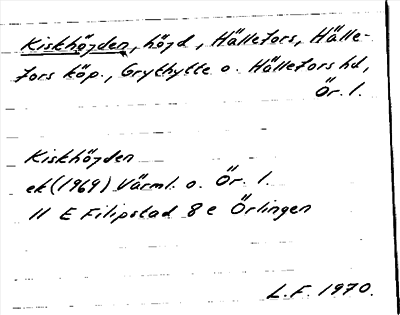 Kiskhöjden, höjd, Hällefors, Hälle-
fors köp., Grythytte o. Hällefors hd,
Ör. l.
Kiskhöjden
ek (1969) Värml. o. Ör. l.
11 E Filipstad 8 e Örlingen
L.F. 1970.